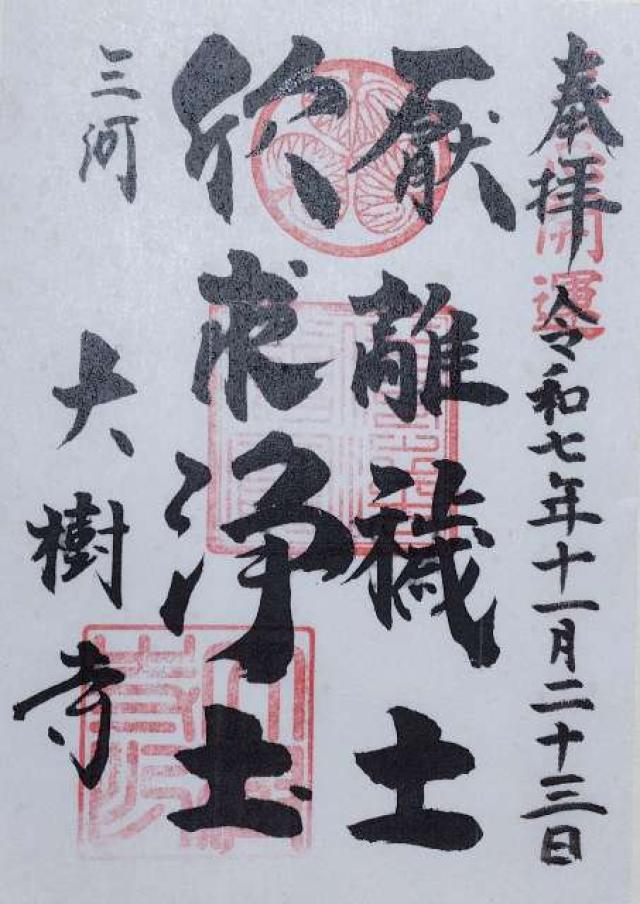 奉拝
開運
令和七年十一月二十三日
厭離穢土
欣求浄土
三河
大樹寺